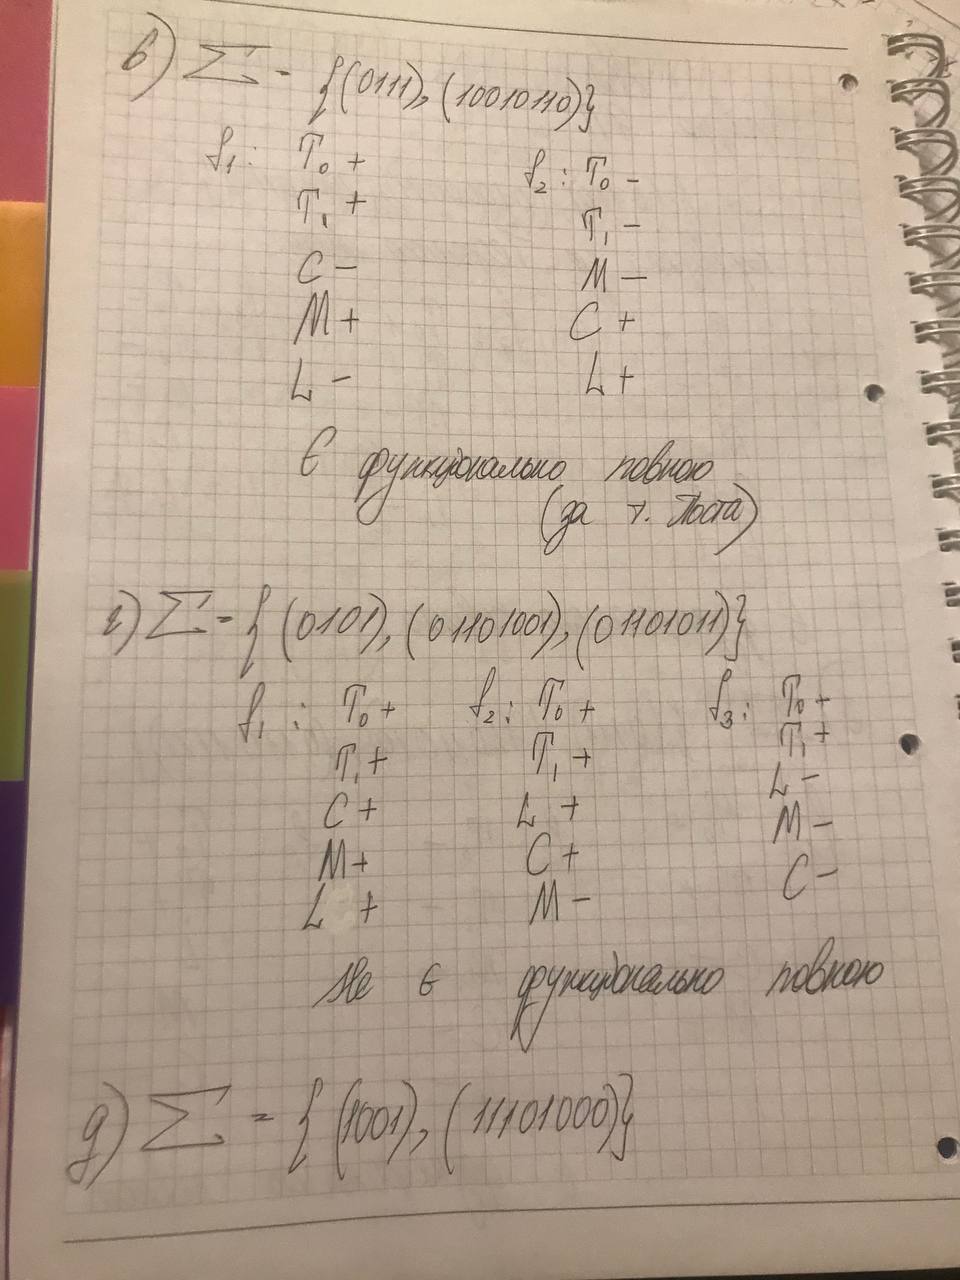 в) Σ = {(0111), (10010110)}
f₁: T₀ + f₂: T₀ -
T₁ + T₁ -
C - M -
M + C +
L - L +
Є функціонально повною
(за т. Поста)
г) Σ = {(0101), (01101001), (01101011)}
f₁: T₀ + f₂: T₀ + f₃: T₀ +
T₁ + T₁ + T₁ +
C + L + L -
M + C + M -
L + M - C -
Не є функціонально повною
д) Σ = {(1001), (11101000)}